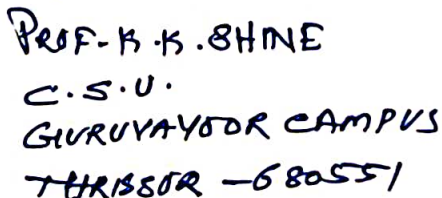 PROF-K.K.SHINE
C.S.U.
GURUVAYOOR CAMPUS
THRISSUR -680551